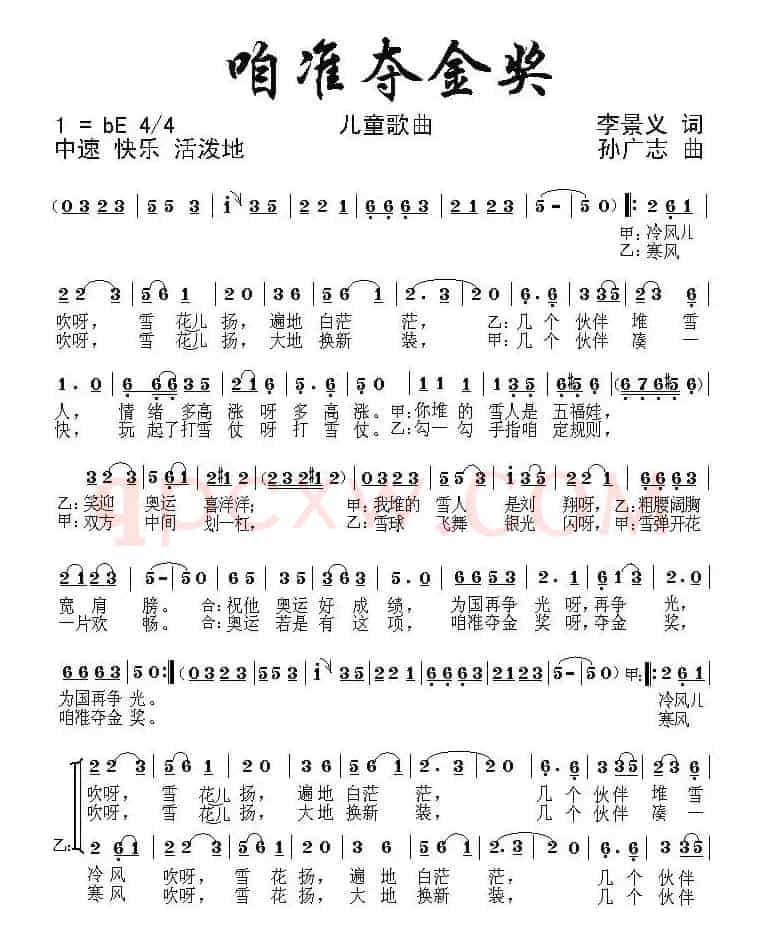 咱准夺金奖
1 = bE 4/4 儿童歌曲 李景义 词
中速 快乐 活泼地 孙广志 曲
(0 3 2 3 | 5 5 3 | i 3 5 | 2 2 1 | 6 6 6 3 | 2 1 2 3 | 5 - | 5 0) ‖: 2 6 1 |
甲:冷风儿
乙:寒风
2 2 3 | 5 6 1 | 2 0 | 3 6 | 5 6 1 | 2. 3 | 2 0 | 6. 6 | 3 3 5 | 2 3 6 |
吹呀, 雪 花儿 扬, 遍地 白茫 茫, 乙:几 个 伙伴 堆 雪
吹呀, 雪 花儿 扬, 大地 换新 装, 甲:几 个 伙伴 凑 一
1. 0 | 6 6 6 3 5 | 2 1 6 | 5. 6 | 5 0 | 1 1 1 | 1 3 5 | 6 #5 6 | (6 7 6 #5 6) |
人, 情 绪 多高 涨 呀 多 高 涨。甲:你 堆 的 雪人 是 五福 娃,
快, 玩 起了 打雪 仗 呀 打 雪 仗。乙:勾 一 勾 手指 咱 定规 则,
3 2 3 | 5 5 6 1 | 2 #1 2 | (2 3 2 #1 2) | 3 2 2 3 | 5 5 3 | i 3 5 | 2 2 1 | 6 6 6 3 |
乙:笑迎 奥运 喜洋洋; 甲:我堆的 雪人 是刘 翔呀,乙:粗腰阔胸
甲:双方 中间 划一杠, 乙:雪球 飞舞 银光 闪呀,甲:雪弹开花
qpcxw.com
2 1 2 3 | 5 - | 5 0 | 6 5 | 3 5 1 | 3 6 | 5 - | 6 6 5 3 | 2. 1 | 6 1 3 | 2. 0 |
宽 肩 膀。 合:祝他 奥运 好 成 绩, 为国 再争 光 呀,再争 光,
一片欢 畅。 合:奥运 若是 有 这 项, 咱准夺金 奖 呀,夺金 奖,
6 6 6 3 | 5 0 :‖ (0 3 2 3 | 5 5 3 | i 3 5 | 2 2 1 | 6 6 6 3 | 2 1 2 3 | 5 - | 5 0) 甲:‖: 2 6 1 |
为国再争 光。 冷风儿
咱准夺金 奖。 寒风
2 2 3 | 5 6 1 | 2 0 | 3 6 | 5 6 1 | 2. 3 | 2 0 | 6. 6 | 3 3 5 | 2 3 6 |
吹呀, 雪 花儿 扬, 遍地 白茫 茫, 几 个 伙伴 堆 雪
吹呀, 雪 花儿 扬, 大地 换新 装, 几 个 伙伴 凑 一
乙: 2 6 1 | 2 2 3 | 5 6 1 | 2 0 | 3 6 | 5 6 1 | 2. 3 | 2 0 | 6. 6 | 3 3 5 |
冷 风 吹呀, 雪 花 扬, 遍 地 白茫 茫, 几 个 伙伴
寒 风 吹呀, 雪 花 扬, 大 地 换新 装, 几 个 伙伴